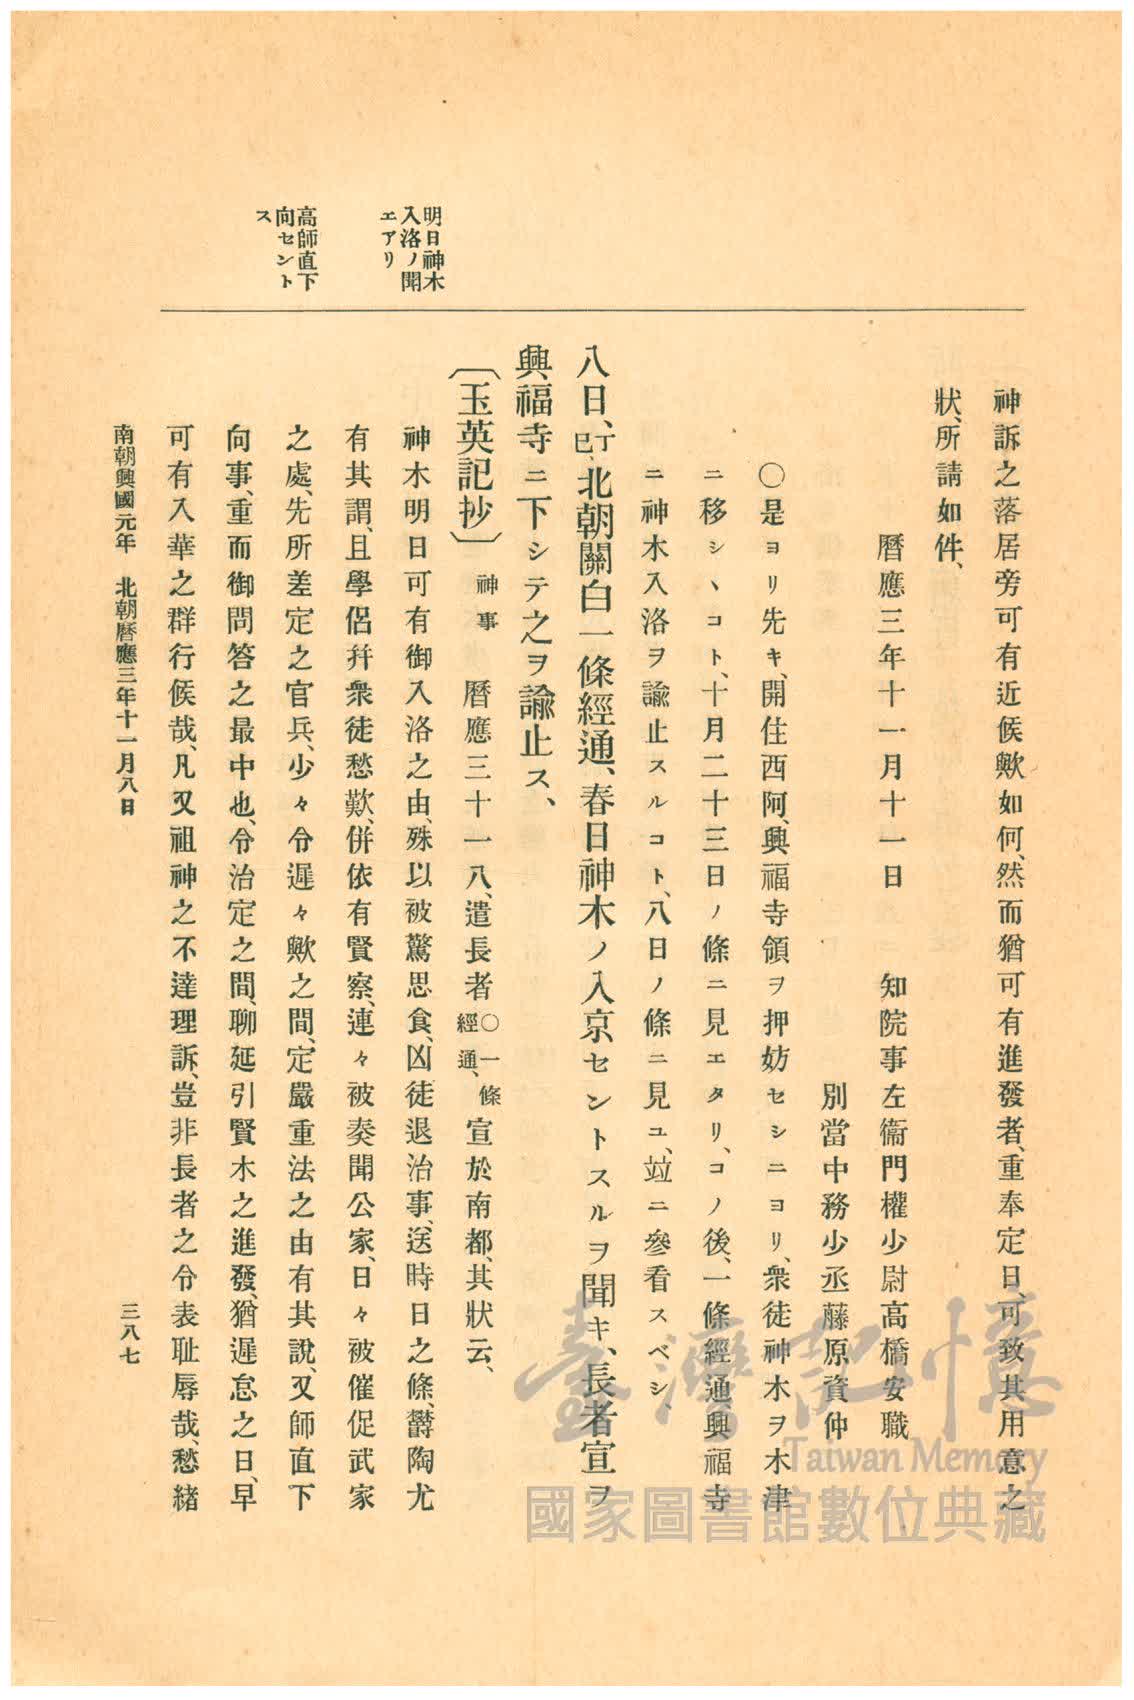 神訴之落居旁可有近候歟如何、然而猶可有進發者、重奉定日、可致其用意之
狀、所請如件、
曆應三年十一月十一日　知院事左衞門權少尉高橋安職
別當中務少丞藤原資仲
○是ヨリ先キ、開住西阿、興福寺領ヲ押妨セシニヨリ、衆徒神木ヲ木津
ニ移シヽコト、十月二十三日ノ條ニ見エタリ、コノ後、一條經通、興福寺
ニ神木入洛ヲ諭止スルコト、八日ノ條ニ見ユ、竝ニ參看スベシ、
八日、丁巳、北朝關白一條經通、春日神木ノ入京セントスルヲ聞キ、長者宣ヲ
興福寺ニ下シテ之ヲ諭止ス、
〔玉英記抄〕神事　曆應三十一八、遣長者○一條經通、宣於南都、其狀云、
明日神木
入洛ノ聞
エアリ
神木明日可有御入洛之由、殊以被驚思食、凶徒退治事、送時日之條、欝陶尤
有其謂、且學侶幷衆徒愁歎、併依有賢察、連々被奏聞公家、日々被催促武家
之處、先所差定之官兵、少々令遲々歟之間、定嚴重法之由有其說、又師直下
高師直下
向セント
ス
向事、重而御問答之最中也、令治定之間、聊延引賢木之進發、猶遲怠之日、早
可有入華之群行候哉、凡又祖神之不達理訴、豈非長者之令表耻辱哉、愁緖
南朝興國元年　北朝曆應三年十一月八日
三八七
臺灣記憶
Taiwan Memory
國家圖書館數位典藏